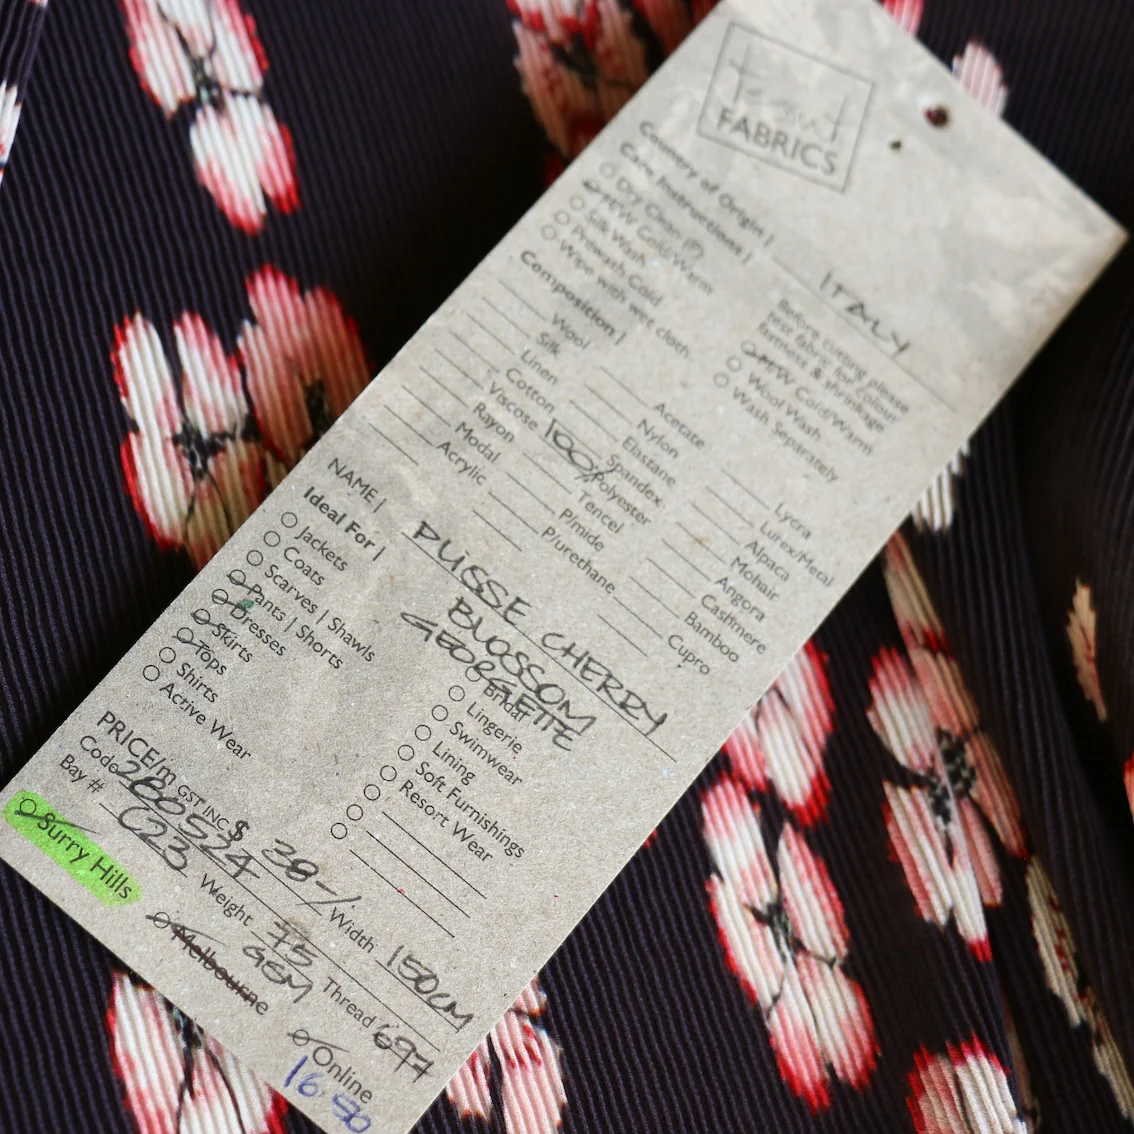 FABRICS
Country of Origin | ITALY
Care Instructions |
Dry Clean (P)
M/W Cold/Warm
Silk Wash
Prewash Cold
Wipe with wet cloth
Before cutting please
test fabric for colour
fastness & shrinkage
M/W Cold/Warm
Wool Wash
Wash Separately
Composition |
Wool
Silk
Linen
Cotton
Viscose
Rayon
Modal
Acrylic
Acetate
Nylon
Elastane
Spandex
100% Polyester
Tencel
P/mide
P/urethane
Lycra
Lurex/Metal
Alpaca
Mohair
Angora
Cashmere
Bamboo
Cupro
NAME | PLISSE CHERRY
BLOSSOM
GEORGETTE
Ideal For |
Jackets
Coats
Scarves | Shawls
Pants | Shorts
Dresses
Skirts
Tops
Shirts
Active Wear
Bridal
Lingerie
Swimwear
Lining
Soft Furnishings
Resort Wear
PRICE/m GST INC $ 38-/
Code 2805574 Width 150CM
Bay # C23 Weight 75 GSM Thread 697
Surry Hills Melbourne Online
16.50